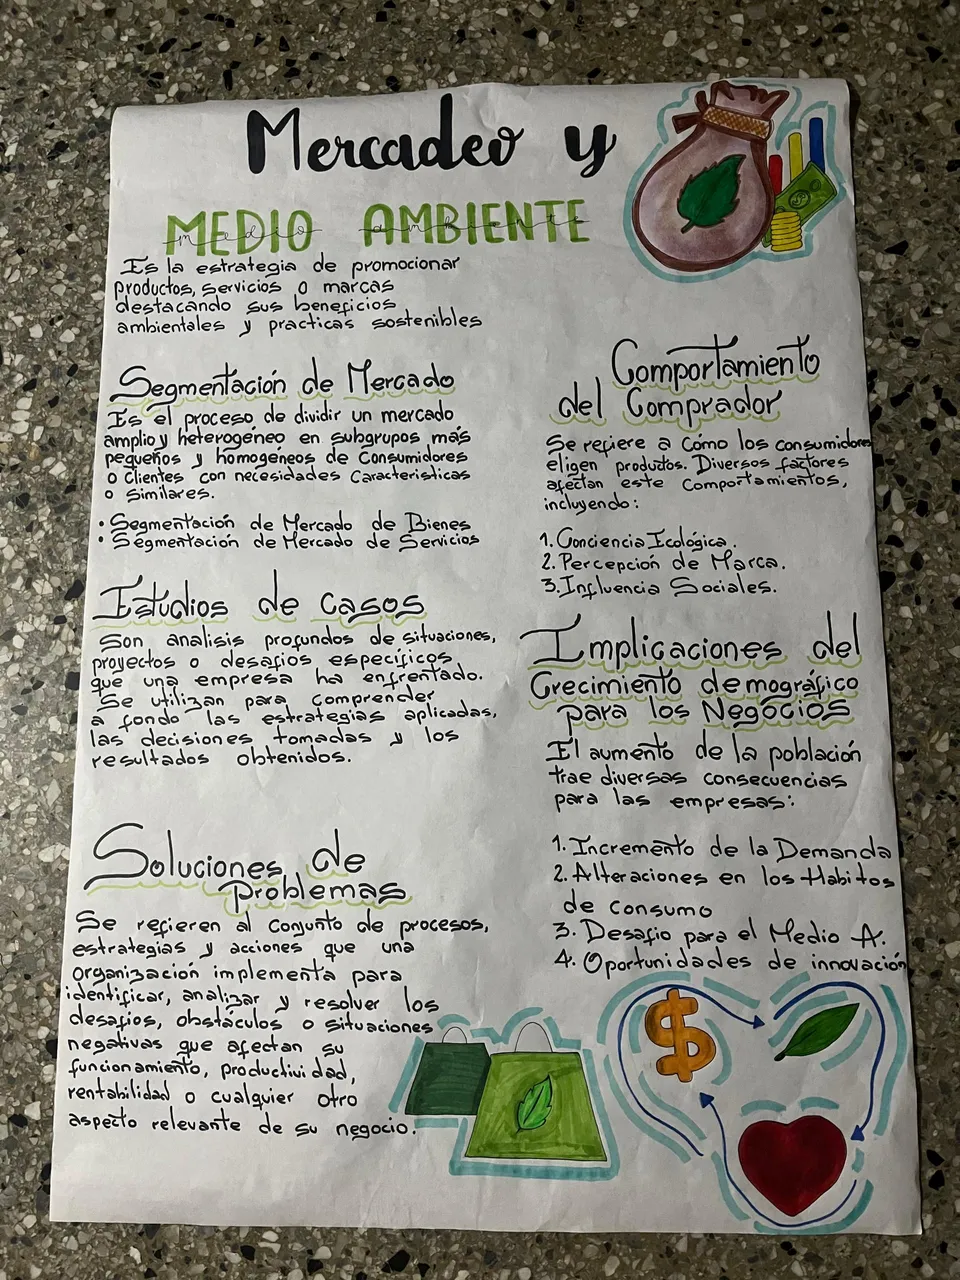 Mercadeo y
MEDIO AMBIENTE
medio ambiente
Es la estrategia de promocionar
productos, servicios o marcas
destacando sus beneficios
ambientales y practicas sostenibles
Segmentación de Mercado
Es el proceso de dividir un mercado
amplio y heterogéneo en subgrupos más
pequeños y homogéneos de Consumidores
o Clientes con necesidades Caracteristicas
o Similares.
• Segmentación de Mercado de Bienes
• Segmentación de Mercado de Servicios
Estudios de Casos
Son analisis profundos de situaciones,
proyectos o desafíos específicos
que una empresa ha enfrentado.
Se utilizan para comprender
a fondo las estrategias aplicadas,
las decisiones tomadas y los
resultados obtenidos.
Soluciones de
Problemas
Se refieren al conjunto de procesos,
estrategias y acciones que una
organización implementa para
identificar, analizar y resolver los
desafios, obstáculos o situaciones
negativas que afectan su
funcionamiento, productividad,
rentabilidad o cualquier otro
aspecto relevante de su negocio.
Comportamiento
del Comprador
Se refiere a Cómo los consumidores
eligen productos. Diversos factores
afectan este Comportamientos,
incluyendo:
1. Conciencia Ecológica.
2. Percepción de Marca.
3. Influencia Sociales.
Implicaciones del
Crecimiento demográfico
para los Negocios
El aumento de la población
trae diversas consecuencias
para las empresas:
1. Incremento de la Demanda
2. Alteraciones en los Habitos
de consumo
3. Desafio para el Medio A.
4. Oportunidades de innovación